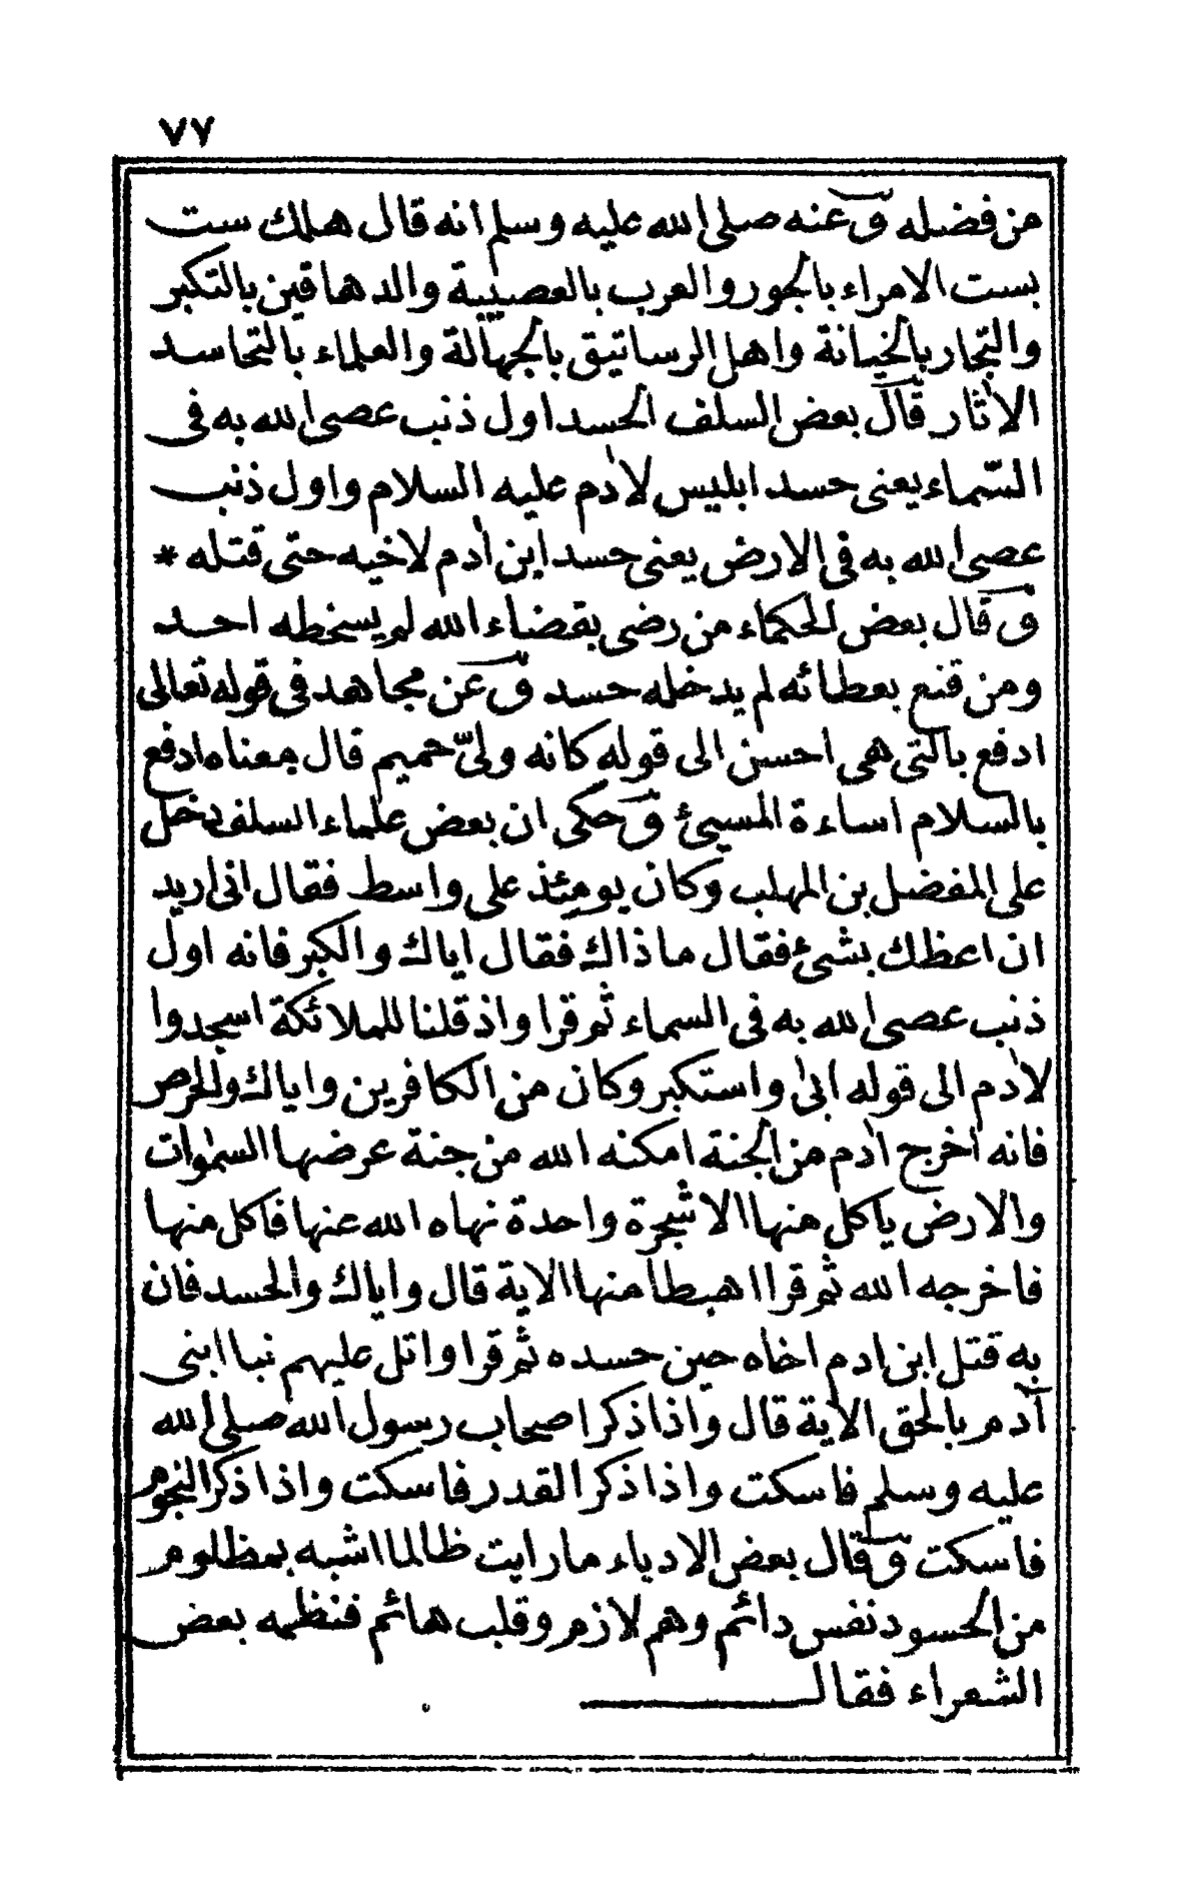 ٧٧
من فضله وعنه صلى الله عليه وسلم انه قال هلك ست
بست الامراء بالجور والعرب بالعصبية والدهاقين بالتكبر
والتجار بالخيانة واهل الرساتيق بالجهالة والعلماء بالتحاسد
الاثار قال بعض السلف الحسد اول ذنب عصى الله به فى
السّماء يعنى حسد ابليس لاٰدم عليه السلام واول ذنب
عصى الله به فى الارض يعنى حسد ابن اٰدم لاخيه حتى قتله *
وقال بعض الحكماء من رضى بقضاء الله لم يسخطه احد
ومن قنع بعطائه لم يدخله حسد وعن مجاهد فى قوله تعالى
ادفع بالتى هى احسن الى قوله كانه ولىّ حميم قال معناه ادفع
بالسلام اساءة المسيئ وحكى ان بعض علماء السلف دخل
على المفضل بن المهلب وكان يومئذ على واسط فقال انى اريد
ان اعظك بشئ فقال ما ذاك فقال اياك والكبر فانه اول
ذنب عصى الله به فى السماء ثم قرا واذ قلنا للملائكة اسجدوا
لاٰدم الى قوله ابىٰ واستكبر وكان من الكافرين واياك والحرص
فانه اخرج اٰدم من الجنة امكنه الله من جنة عرضها السمٰوات
والارض ياكل منها الا شجرة واحدة نهاه الله عنها فاكل منها
فاخرجه الله ثم قرا اهبطا منها الاية قال واياك والحسد فان
به قتل ابن ادم اخاه حين حسده ثم قرا واتل عليهم نبا ابنى
آدم بالحق الاية قال واذا ذكر اصحاب رسول الله صلى الله
عليه وسلم فاسكت واذا ذكر القدر فاسكت واذا ذكر النجوم
فاسكت وقال بعض الادباء ما رايت ظالما اشبه بمظلوم
من الحسود نفس دائم وهم لازم وقلب هائم فنظمه بعض
الشعراء فقال